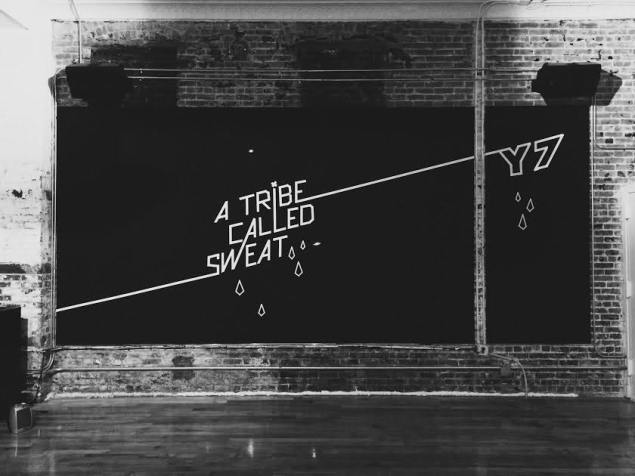 A TRIBE
CALLED
SWEAT
Y7